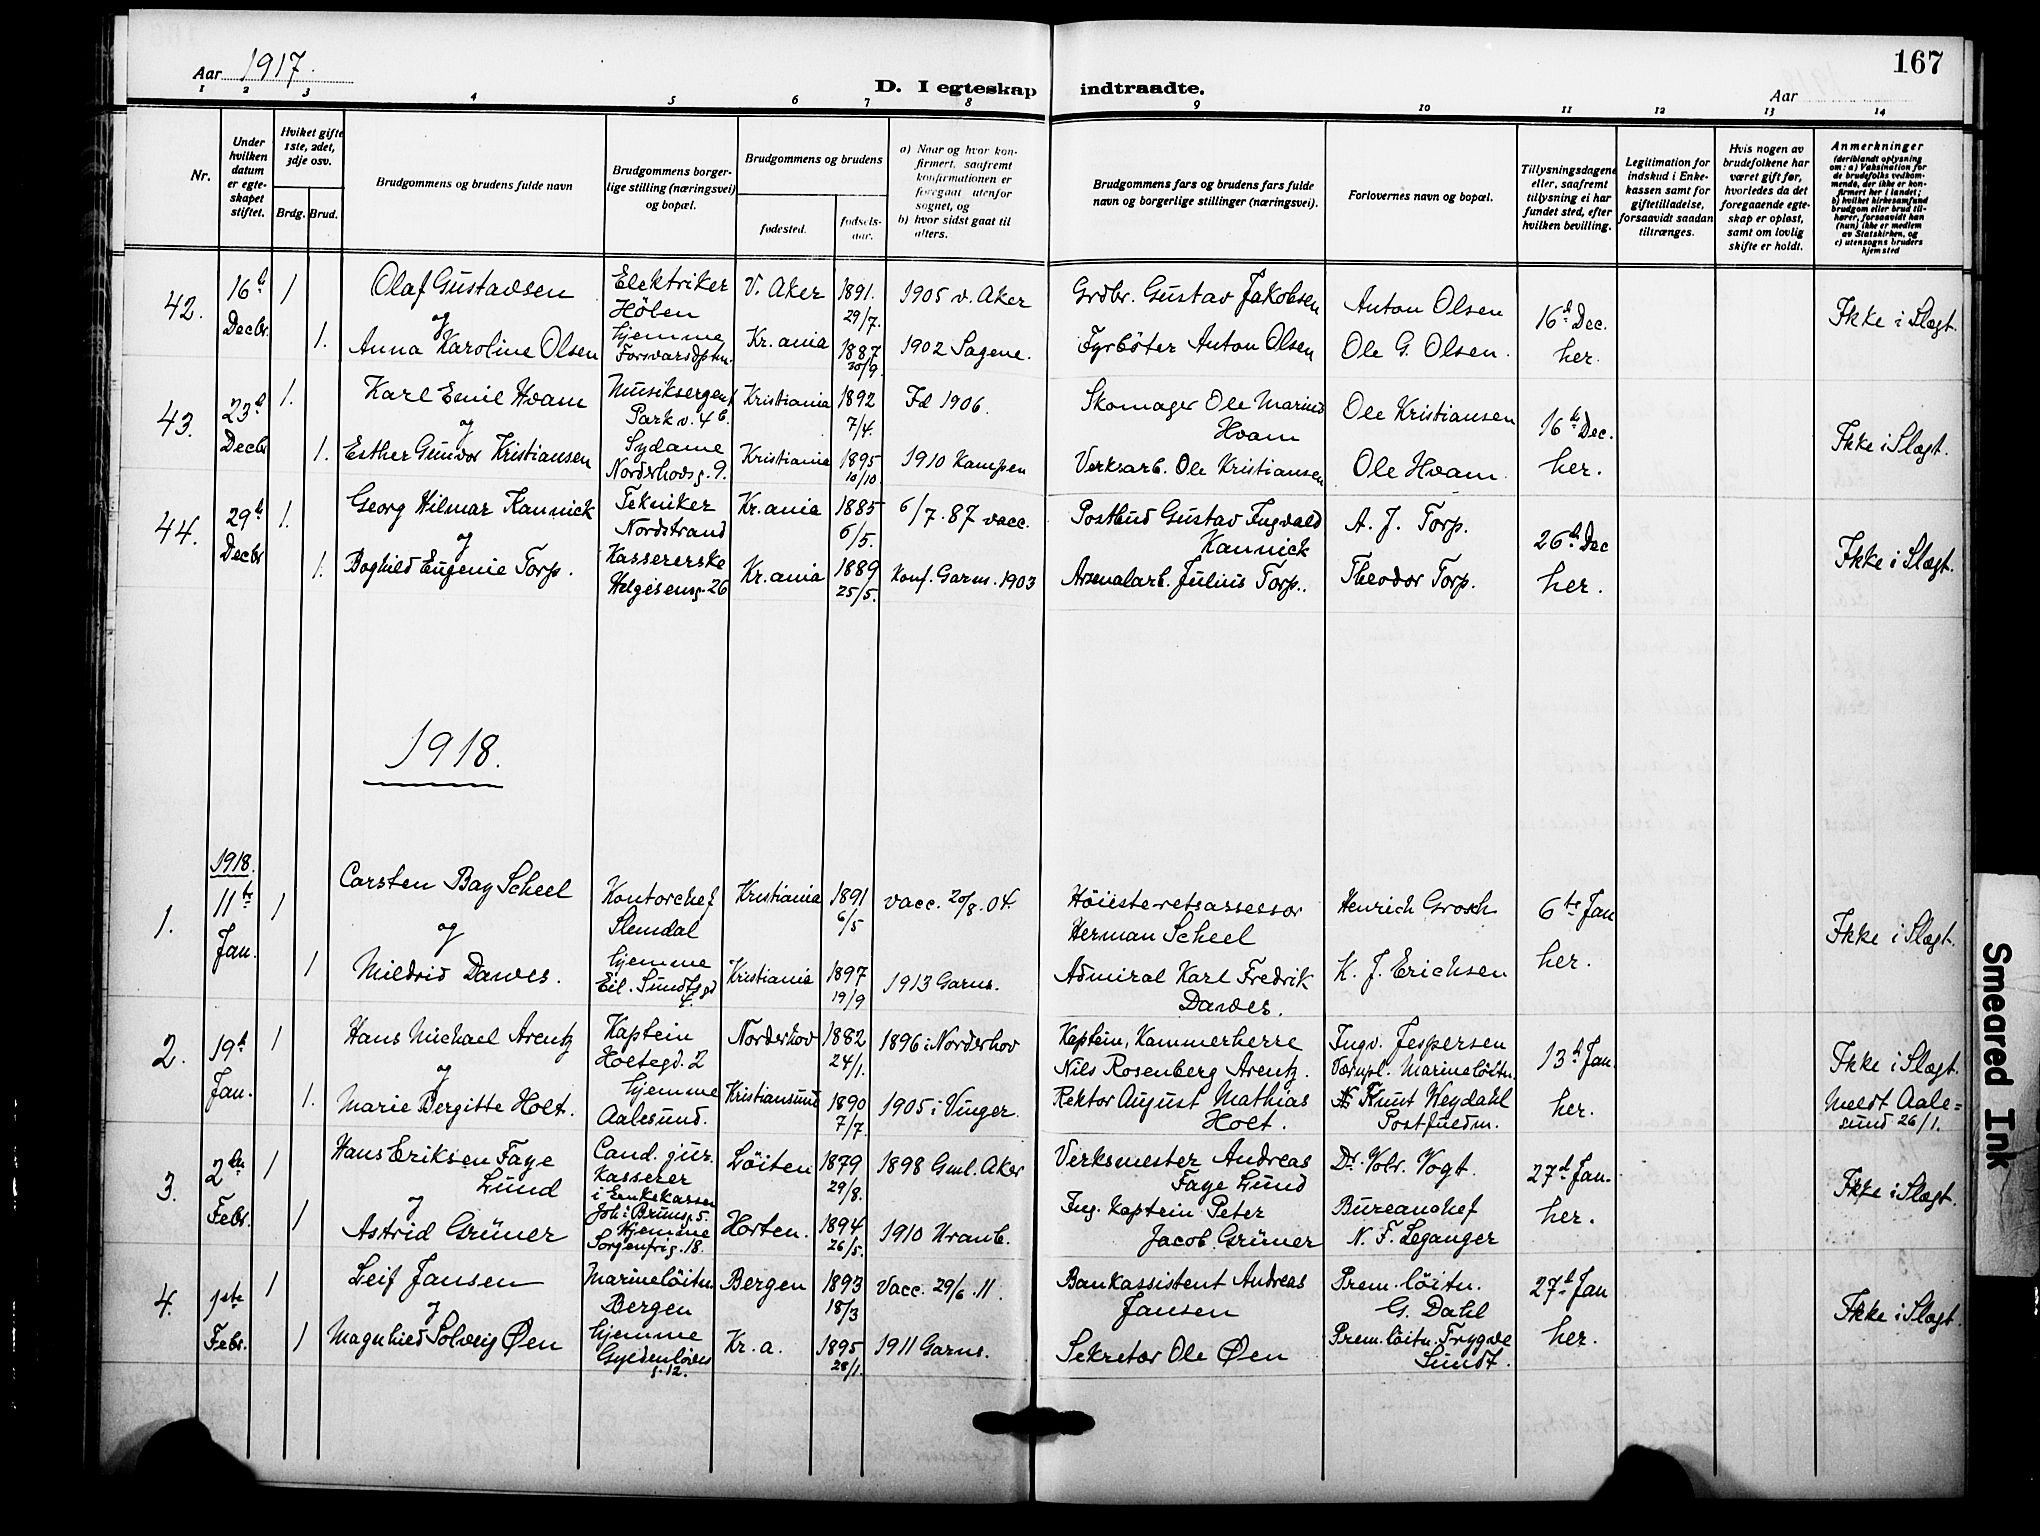 167
Aar 1917.
D. I egteskap indtraadte.
Aar
1 2 3 4 5 6 7 8 9 10 11 12 13 14
Nr.
Under hvilken datum er egteskapet stiftet.
Hvilket gifte 1ste, 2det, 3dje osv.
Brdg. Brud.
Brudgommens og brudens fulde navn
Brudgommens borgerlige stilling (næringsvei) og bopæl.
Brudgommens og brudens
fødested.
fødsels-aar.
a) Naar og hvor konfirmert, saafremt konfirmationen er foregaat utenfor sognet, og
b) hvor sidst gaat til alters.
Brudgommens fars og brudens fars fulde navn og borgerlige stillinger (næringsvei).
Forlovernes navn og bopæl.
Tillysningsdagene eller, saafremt tillysning ei har fundet sted, efter hvilken bevilling.
Legitimation for indskud i Enkekassen samt for giftetilladelse, forsaavidt saadan tiltrænges.
Hvis nogen av brudefolkene har været gift før, hvorledes da det foregaaende egteskap er opløst, samt om lovlig skifte er holdt.
Anmerkninger
(deriblandt oplysning om: a) Vaksination for de brudefolks vedkommende, der ikke er konfirmert her i landet; b) hvilket kirkesamfund brudgom eller brud tilhører, forsaavidt han (hun) ikke er medlem av Statskirken, og c) utensogns bruders hjemsted
42. 16de Decbr. 1 Olaf Gustavsen Elektriker Hölen V. Aker 1891. 29/7. 1905 v. Aker Grdbr. Gustav Jakobsen Anton Olsen 16de Dec. her. Ikke i Slægt.
og
1. Anna Karoline Olsen hjemme Kr.ania 1887 30/9 1902 Sagene. Fyrböter Anton Olsen Ole G. Olsen.
43. 23de Decbr 1. Karl Emil Hvam Musiksergent Park v. 4 b. Kristiania 1892 7/4. Fd 1906. Skomager Ole Marius Hvam Ole Kristiansen 16de Dec. her. Ikke i Slægt.
og
1. Esther Gunvor Kristiansen Sydame Norderhovsg. 9. Kristiania 1895 10/10 1910 Kampen Verksarb. Ole Kristiansen Ole Hvam
44. 29de Decbr 1. Georg Hilmar Kannick Tekniker Nordstrand Kr.ania 1885 6/5. 6/7. 87 vacc. Postbud Gustav Ingvald Kannick A. J. Torp. 26de Dec her. Ikke i Slægt.
og
1. Boghild Eugenie Torp. Kassererske Helgesensg. 26 Kr.ania 1889 25/5. Konf. Garns. 1903 Arsenalarb. Julius Torp. Theodor Torp.
1918.
1918.
1. 11te Jan. 1 Carsten Bay Scheel Kontorchef Slemdal Kristiania 1891 6/5 vacc. 20/8. 04. Höiesteretsassessor Herman Scheel Henrich Grosch 6te Jan her. Ikke i Slægt.
og
1 Mildrid Dawes. hjemme Eil. Sundtsgd Kristiania 1897 19/9 1913 Garns. Admiral Karl Fredrik Dawes. K. J. Erichsen
2. 19de Jan. 1 Hans Michael Arentz Kaptein Holtegd. 2 Norderhov 1882 24/1. 1896 i Norderhov Kaptein, Kammerherre Nils Rosenberg Arentz. Ingv. Jespersen Værnpl. Marinelöitn. 13de Jan. her. Ikke i Slægt.
og
1. Marie Bergitte Holt. hjemme Aalesund. Kristiansund 1890 7/7. 1905 i Vinger. Rektor August Mathias Holt. Knut Weydahl Postfuldm. Meldt Aalesund 26/1.
3. 2den Febr. 1 Hans Eriksen Faye Lund Cand. jur. Kasserer i Enkekassen Joh. Brunsg. 5. Löiten 1879 29/8. 1898 Gml. Aker Verksmester Andreas Faye Lund Dr. Volr. Vogt. 27de Jan. her. Ikke i Slægt.
og
1 Astrid Grüner Hjemme Sorgenfrig. 18. Horten. 1894 26/5. 1910 Uranb. Ing. Kaptein Peter Jacob Grüner Bureauchef N. F. Leganger
4. 1ste Febr. 1 Leif Jansen Marinelöitn. Bergen Bergen 1893 18/3 Vacc. 29/6. 11. Bankassistent Andreas Jansen Prem. löitn. G. Dahl 27de Jan her. Ikke i Slægt.
og
1 Magnhild Solveig Øen hjemme Gyldenløves g. 12. Kr. a. 1895 28/1. 1911 Garns. Sekretær Ole Øen Prem. löitn. Trygve Sundt.
Smeared Ink